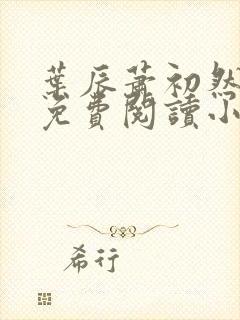 葉辰蕭初然
免費閱讀小
希行